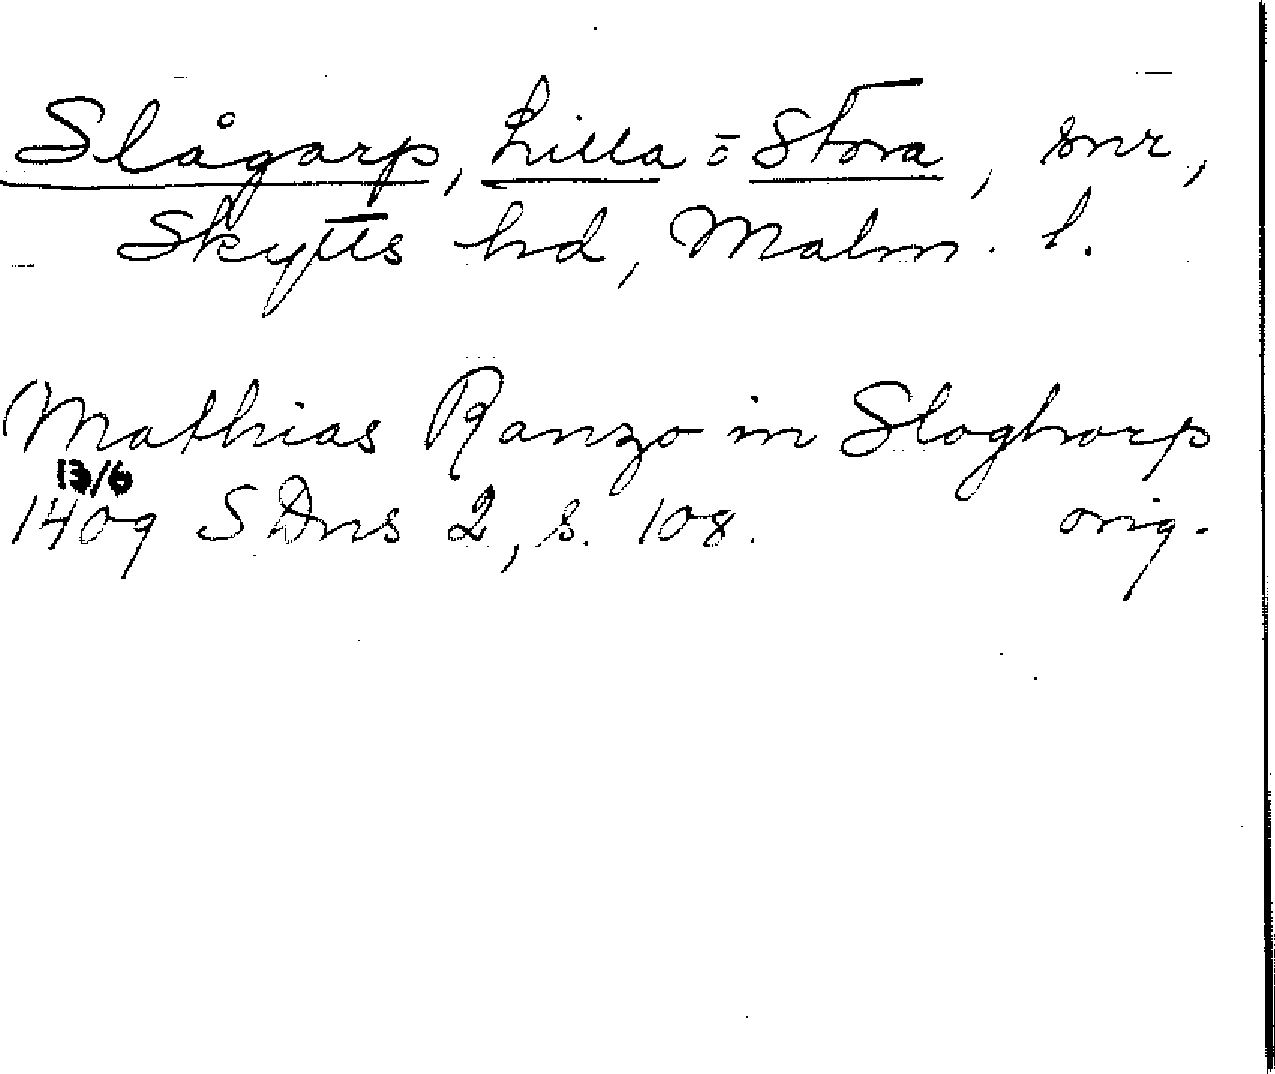 Slågarp, Lilla o̅ Stora, snr,
Skytts hd, Malm. l.
Mathias Ranzo in Sloghorp
13/6
1409 SDns 2, s. 108. orig.